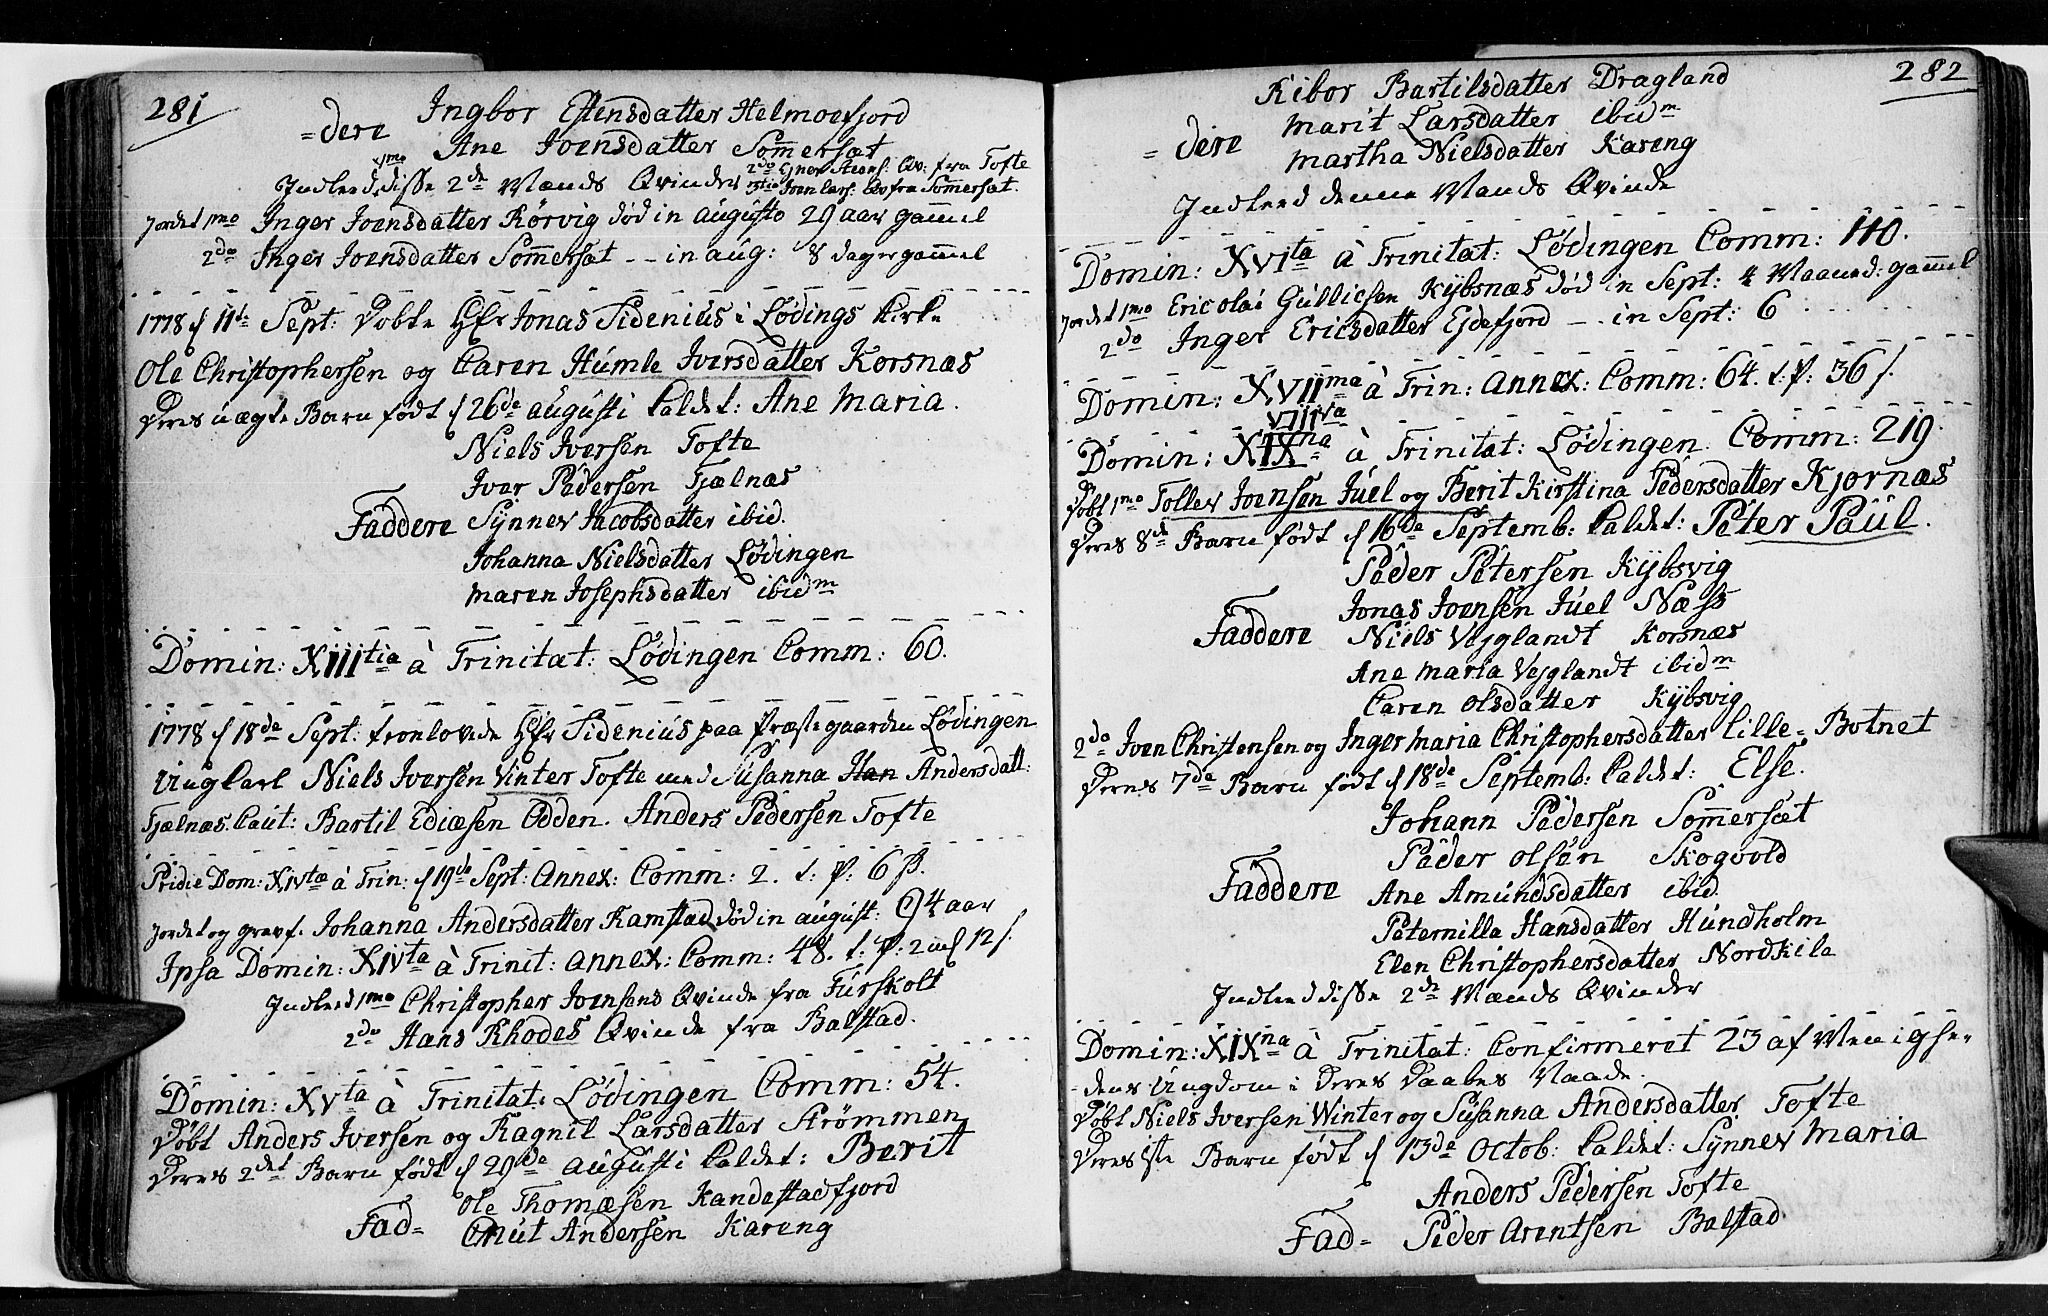 281
Ingbor Estensdatter Helmoefjord
=dere Ane Joensdatter Sommersæt
Indleed 1mo disse 2de Mænds Qvinder 2do Ejner Steens. Qv. fra Tofte
3tio Joen Lars. Qv fra Sommersæt.
Jordet 1mo Inger Joensdatter Rörvig död in augusto 29 aar gammel
2do Inger Joensdatter Sommersæt -- in aug: 8 dager gammel
1778 d 11te Sept: Döbte Hr Jonas Sidenius i Lødings Kirke
Ole Christophersen og Caren Humle Iversdatter Korsnæs
Deres uægte Barn født d 26de augusti kaldet: Ane Maria.
Niels Iversen Tofte
Iver Pedersen Fjælnæs
Faddere Synnev Jacobsdatter ibid.
Johanna Nielsdatter Lødingen
Maren Josephsdatter ibidm
Domin: XIIItia à Trinitat: Lødingen Comm: 60.
1778 d 18de Sept: tronlovede Hr Sidenius paa Præstegaarden Lødingen
Ungkarl Niels Iversen Vinter Tofte med Susanna Han Andersdatt:
Fjælnæs. Caut: Bartil Ediæsen Odden. Anders Pedersen Tofte
Pridie Dom: XIVtæ à Trin: d 19de Sept: Annex: Comm: 2. t: P: 6 β.
Jordet og gravf. Johanna Andersdatter Kamstad död in august: 94 aar
Ipsa Domin: XIVta à Trinit: Annex: Comm: 48. t: P: 2 m 12 β.
Indleed 1mo Christopher Joensens Qvinde fra Furskolt
2do Hans Rhodes Qvinde fra Balstad.
Domin: XVta à Trinitat: Lødingen Comm: 54.
Döbt Anders Iversen og Ragnil Larsdatter Strömmen
Deres 2det Barn født d 29de augusti kaldet: Berit
Ole Thomæsen Kandestadfjord
Fad= Cnut Andersen Kareng
282
Kibor Bartilsdatter Dragland
=dere Marit Larsdatter ibidm
Martha Nielsdatter Kareng
Indleed denne Mands Qvinde
Domin: XVIta à Trinitat: Lødingen Comm: 110.
Jordet 1mo Eric Olai Gullicsen Kybsnæs död in Sept: 4 Maaned: gammel
2do Inger Ericsdatter Ejdefjord -- in Sept: 6
Domin: XVIIma à Trin: Annex: Comm: 64. t: P: 36 β.
VIIIva
Domin: XIXna à Trinitat: Lødingen Comm: 219.
Döbt 1mo Tollev Joensen Juel og Berit Kirstina Pedersdatter Kjornæs
Deres 8de Barn født d 16de Septemb: kaldet: Peter Paul.
Peder Petersen Kybsvig
Jonas Joensen Juel Næss
Faddere Niels Vejglandt Korsnæs
Ane Maria Vejglandt ibidm
Caren Olsdatter Kybsvig
2do Joen Christensen og Inger Maria Christophersdatter Lille=Botnet
Deres 7de Barn født d 18de Septemb: kaldet: Else.
Johann Pedersen Sommersæt
Peder Olsøn Skogvold
Faddere Ane Amundsdatter ibid.
Peternilla Hansdatter Hundholm
Elen Christophersdatter Nordkile
Indleed disse 2de Mænds Qvinder
Domin: XIXna à Trinitat: Confirmeret 23 af Menighe-
dens Ungdom i Deres Daabes Naade.
Döbt Niels Iversen Winter og Susanna Andersdatter Tofte
Deres 1ste Barn født d 13de Octob: kaldet: Synnev Maria
Anders Pedersen Tofte
Fad= Peder Arentsen Balstad